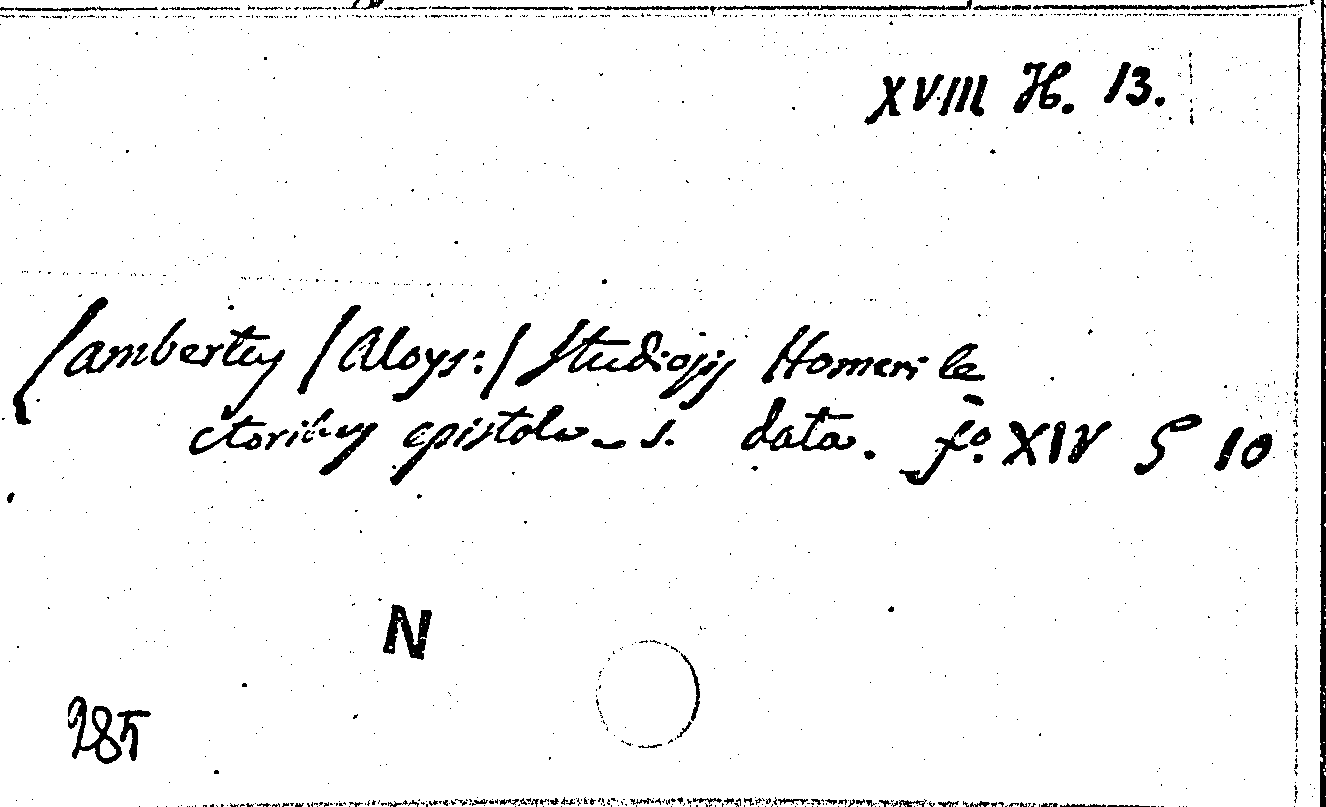 XVIII H. 13.
Lambertus /Aloys:/ Studiosis Homeri le
ctoribus epistola - s. data. fo. XIV S 10
N
285